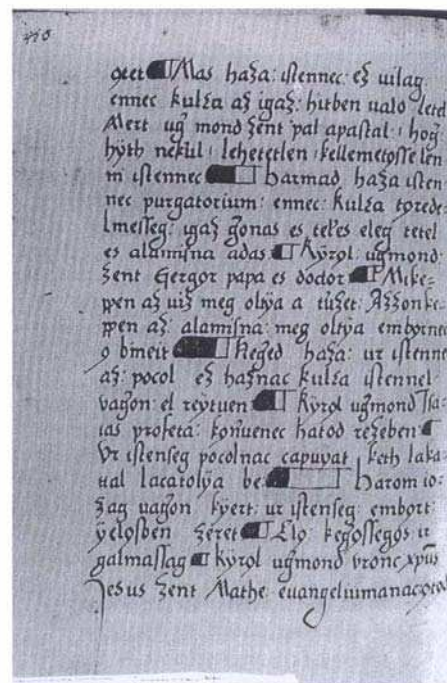 ɡet Mas haza: istennec: ez uilag
ennec kulza az igaz: hitben ualo
Mert ug mond zent pal apastal: hog
hyth nekul: lehetetlen: kellemetosse len
ni istennec harmad haza isten
nec purgatorium: ennec: kulza tørede
lmesseg: igaz gonas es telies eleg tetel
es alamisna adas kyrol ugmond
zent Gergor papa es dodor Mike-
ppen az uiz meg oltÿa a tüzet: Azzonke
ppen az: alamisna: meg oltÿa embornec
o bineit Neged haza: ur istenne
az: pocol ez haznac kulza istennel
vagon: el reÿtuen kÿrol ugmond Isa-
ias profeta: konuenec hatod rezeben
Vr istenseg pocolnac capuyat keth laka
tual lacatolÿa be: harom io:
zag uagon kÿert: ur istenseg embort:
ÿelosben zeret Elo: kegossegos ir
galmassag kÿrol ugmond vronc xpus
Jesus zent Mathe evangeliumanac